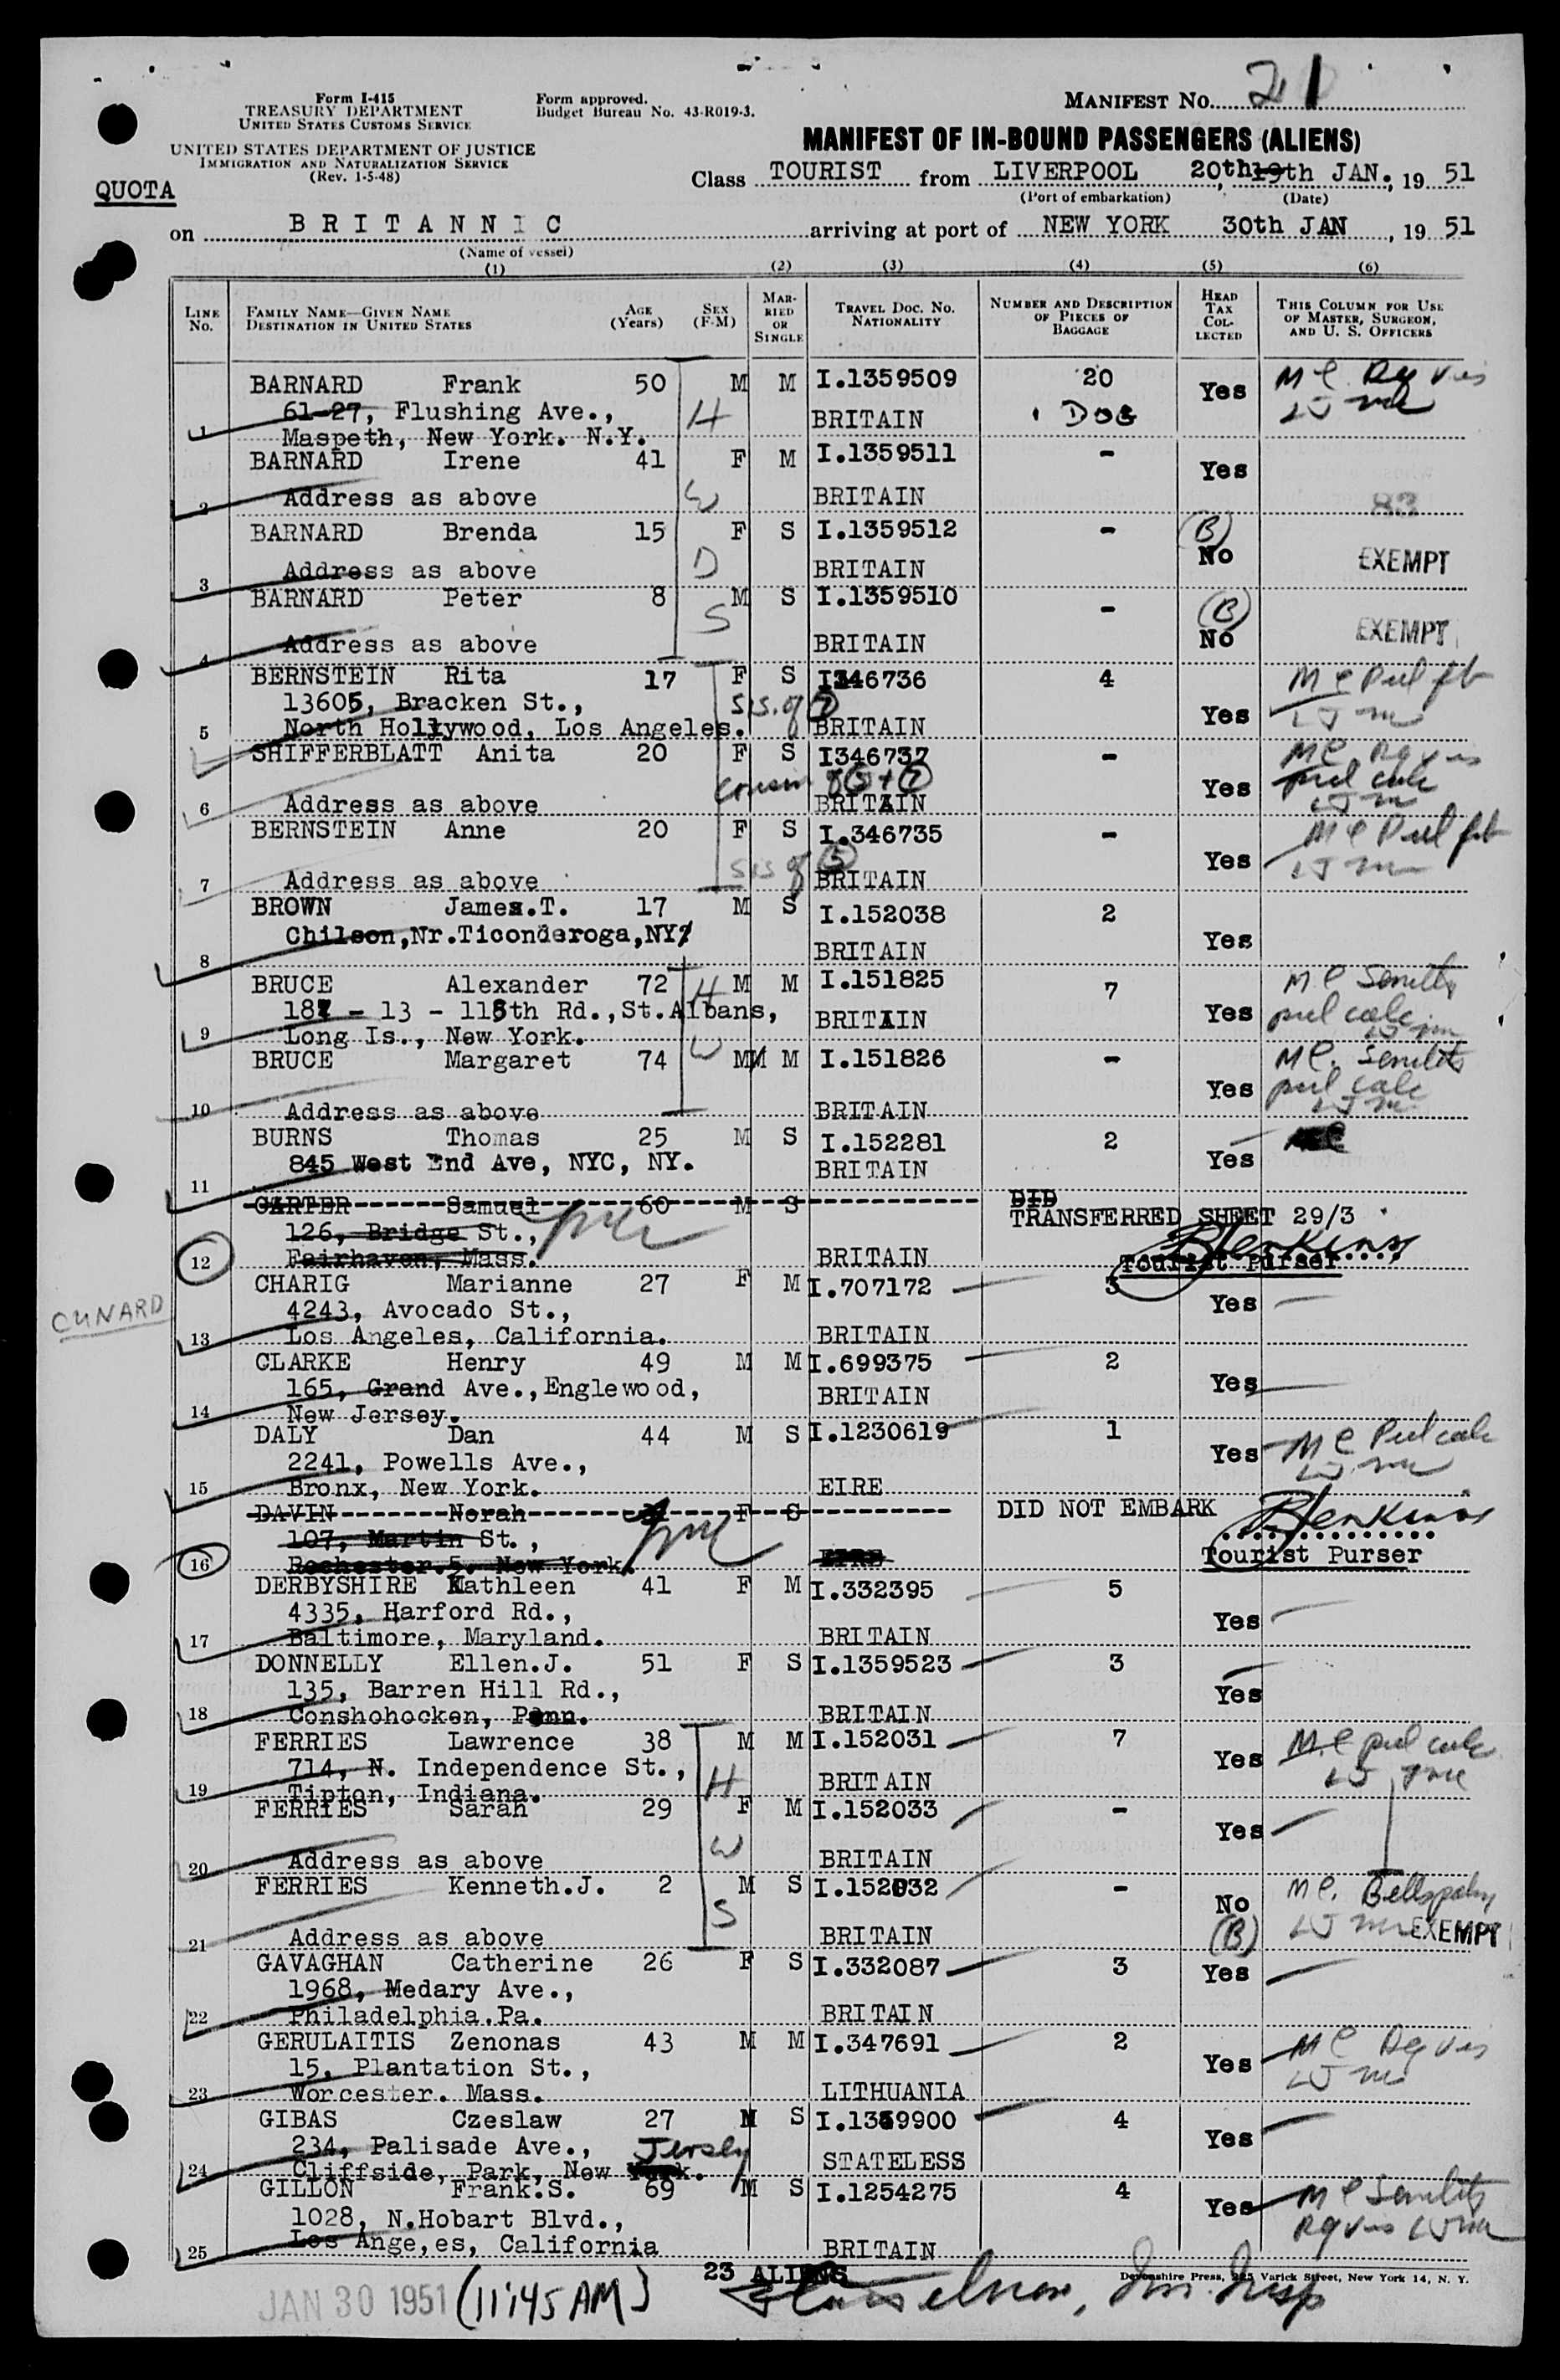 Form I-415
TREASURY DEPARTMENT
UNITED STATES CUSTOMS SERVICE
UNITED STATES DEPARTMENT OF JUSTICE
IMMIGRATION AND NATURALIZATION SERVICE
(Rev. 1-5-48)
Form approved.
Budget Bureau No. 43-R019-3.
MANIFEST No. 21
MANIFEST OF IN-BOUND PASSENGERS (ALIENS)
QUOTA
Class TOURIST from LIVERPOOL 20th 19th JAN., 19 51
(Port of embarkation) (Date)
on BRITANNIC arriving at port of NEW YORK 30th JAN, 19 51
(Name of vessel)
(1) (2) (3) (4) (5) (6)
LINE No.
FAMILY NAME—GIVEN NAME
DESTINATION IN UNITED STATES
AGE (Years)
SEX (F-M)
MARRIED OR SINGLE
TRAVEL DOC. NO.
NATIONALITY
NUMBER AND DESCRIPTION OF PIECES OF BAGGAGE
HEAD TAX COLLECTED
THIS COLUMN FOR USE OF MASTER, SURGEON, AND U. S. OFFICERS
BARNARD Frank 50 M M I.1359509 20 Yes
61-27, Flushing Ave., H BRITAIN 1 DOG
1 Maspeth, New York. N.Y.
BARNARD Irene 41 F M I.1359511 - Yes
2 Address as above W BRITAIN 83
BARNARD Brenda 15 F S I.1359512 - (B) No EXEMPT
3 Address as above D BRITAIN
BARNARD Peter 8 M S I.1359510 - (B) No EXEMPT
4 Address as above S BRITAIN
BERNSTEIN Rita 17 F S I346736 4 Yes
13605, Bracken St., sis. of 7
5 North Hollywood, Los Angeles. BRITAIN
SHIFFERBLATT Anita 20 F S I346737 - Yes
cousin of 5 + 7
6 Address as above BRITAIN
BERNSTEIN Anne 20 F S I.346735 - Yes
sis of 5
7 Address as above BRITAIN
BROWN James.T. 17 M S I.152038 2 Yes
Chilson,Nr.Ticonderoga,NY
8 BRITAIN
BRUCE Alexander 72 H M M I.151825 7 Yes M.C. Senility
187 - 13 - 115th Rd.,St.Albans, BRITAIN
9 Long Is., New York.
BRUCE Margaret 74 W M M I.151826 - Yes MC. Senility
10 Address as above BRITAIN
BURNS Thomas 25 M S I.152281 2 Yes
845 West End Ave, NYC, NY. BRITAIN
11
CARTER Samuel 60 M S DID
TRANSFERRED SHEET 29/3
126, Bridge St.,
12 Fairhaven, Mass. BRITAIN Jenkins
Tourist Purser
CUNARD
CHARIG Marianne 27 F M I.707172 3 Yes
4243, Avocado St.,
13 Los Angeles, California. BRITAIN
CLARKE Henry 49 M M I.699375 2 Yes
165, Grand Ave.,Englewood, BRITAIN
14 New Jersey.
DALY Dan 44 M S I.1230619 1 Yes
2241, Powells Ave.,
15 Bronx, New York. EIRE
DAVIN Norah F S DID NOT EMBARK Jenkins
107, Martin St.,
16 Rochester.5. New York. EIRE Tourist Purser
DERBYSHIRE Kathleen 41 F M I.332395 5 Yes
4335, Harford Rd.,
17 Baltimore, Maryland. BRITAIN
DONNELLY Ellen.J. 51 F S I.1359523 3 Yes
135, Barren Hill Rd.,
18 Conshohocken, Penn. BRITAIN
FERRIES Lawrence 38 M M I.152031 7 Yes
714, N. Independence St., H BRITAIN
19 Tipton, Indiana.
FERRIES Sarah 29 F M I.152033 - Yes
20 Address as above W BRITAIN
FERRIES Kenneth.J. 2 M S I.152032 - No (B) EXEMPT
21 Address as above S BRITAIN
GAVAGHAN Catherine 26 F S I.332087 3 Yes
1968, Medary Ave.,
22 Philadelphia.Pa. BRITAIN
GERULAITIS Zenonas 43 M M I.347691 2 Yes
15, Plantation St.,
23 Worcester. Mass. LITHUANIA
GIBAS Czeslaw 27 M S I.1359900 4 Yes
234, Palisade Ave., Jersey STATELESS
24 Cliffside, Park, New York.
GILLON Frank.S. 69 M S I.1254275 4 Yes
1028, N.Hobart Blvd.,
25 Los Ange,es, California BRITAIN
23 ALIENS
Devonshire Press, 225 Varick Street, New York 14, N. Y.
JAN 30 1951 (11:45 AM)